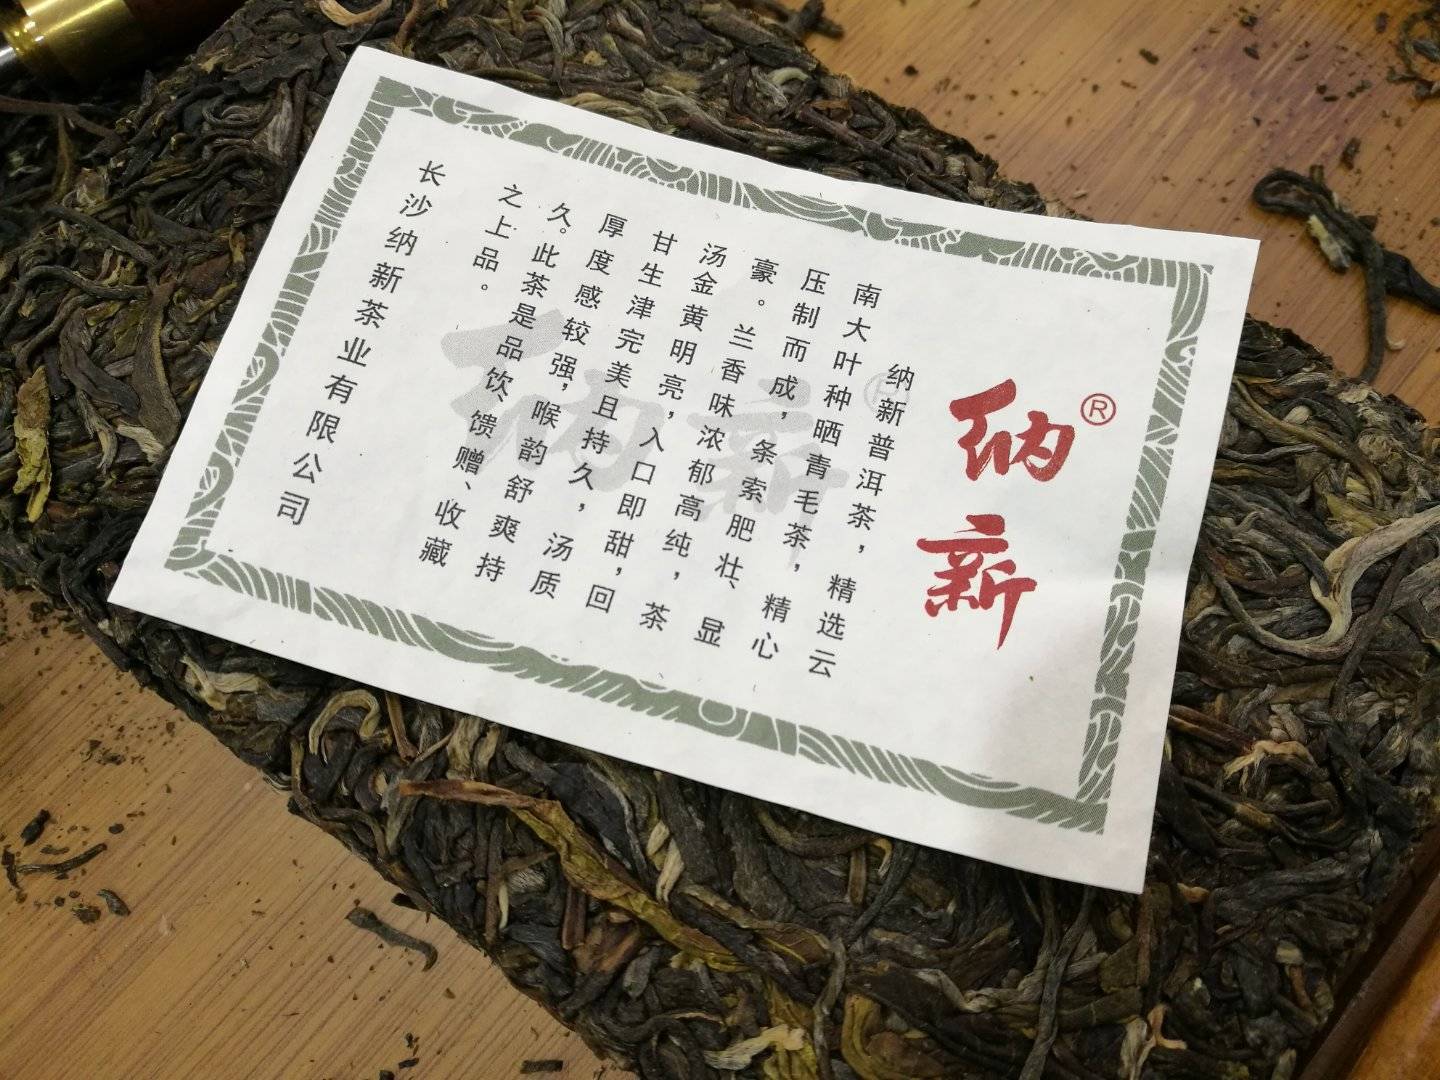 纳新®
纳新普洱茶，精选云
南大叶种晒青毛茶，精心
压制而成，条索肥壮、显
豪。兰香味浓郁高纯，茶
汤金黄明亮，入口即甜，回
甘生津完美且持久，汤质
厚度感较强，喉韵舒爽持
久。此茶是品饮、馈赠、收藏
之上品。
长沙纳新茶业有限公司
纳新®